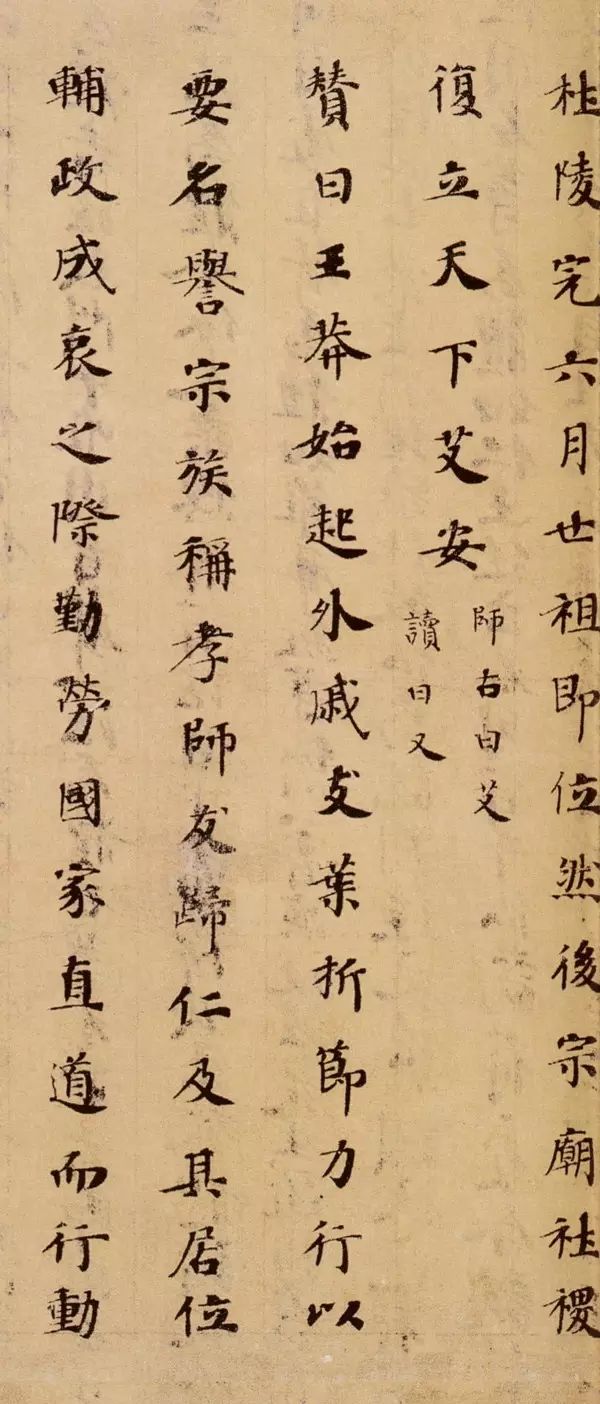 杜陵完六月世祖即位然後宗廟社稷
復立天下艾安
師古曰艾
讀曰乂
賛曰王莽始起外戚支葉折節力行以
要名譽宗族稱孝師友歸仁及其居位
輔政成哀之際勤勞國家直道而行動